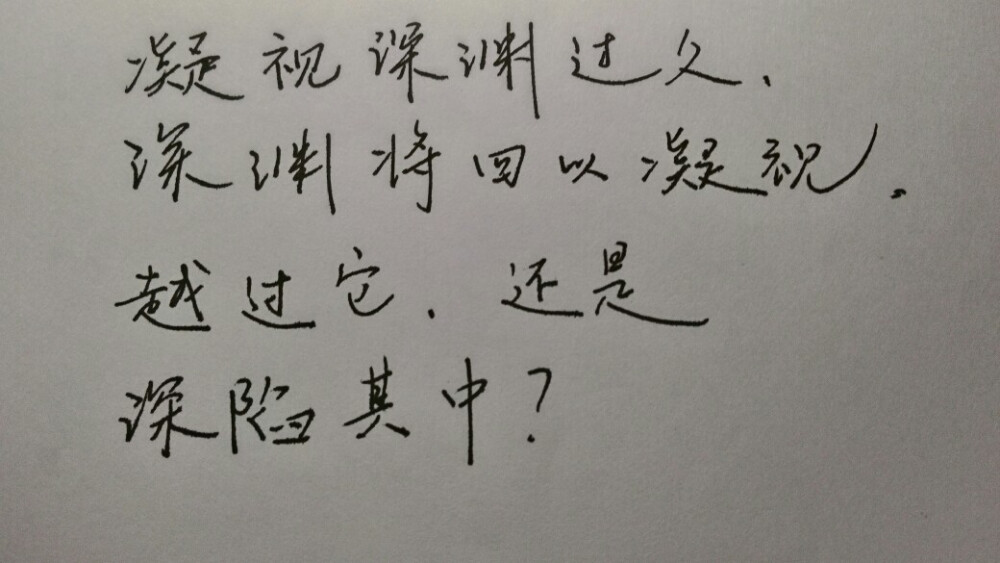 凝视深渊过久、
深渊将回以凝视。
越过它、还是
深陷其中？